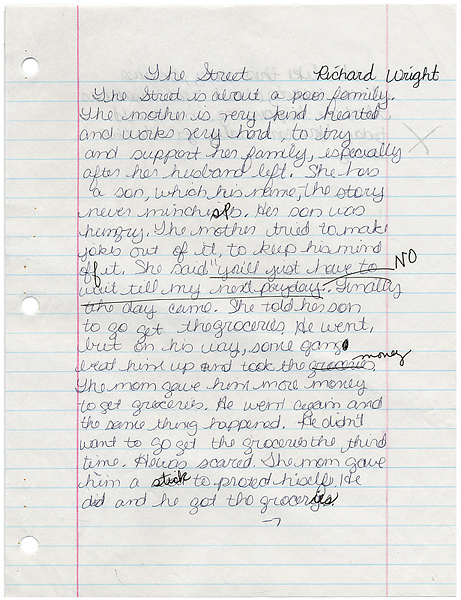 The Street Richard Wright
The Street is about a poor family.
The mother is very kind hearted
and works very hard to try
and support her family, especially
after her husband left. She has
a son, which his name, the story
never minchisps. Her son was
hungry. The mother tried to make
jokes out of it, to keep his mind
off it. She said "you'll just have to NO
wait till my next payday. Finally
the day came. She told her son
to go get the groceries. He went,
but on his way, some gang
beat him up and took the groceries money
The mom gave him more money
to get groceries. He went again and
the same thing happened. He didn't
want to go get the groceries the third
time. He was scared. The mom gave
him a stick to protect hisself. He
did and he got the groceries.